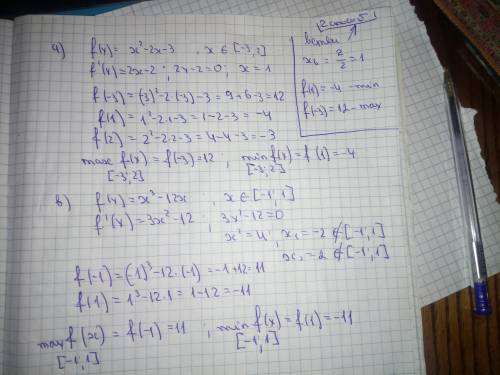 а) f(x) = x²-2x-3 , x ∈ [-3; 2]
f'(x) = 2x-2 ; 2x-2=0; x=1
f(-3) = (-3)²-2·(-3)-3 = 9+6-3 = 12
f(1) = 1²-2·1-3 = 1-2-3 = -4
f(2) = 2²-2·2-3 = 4-4-3 = -3
max f(x) = f(-3) = 12 , min f(x) = f(1) = -4
[-3; 2] [-3; 2]
2 способ
ветви ↑
x₀ = 2/2 = 1
f(1) = -4 - min
f(-3) = 12 - max
в) f(x) = x³-12x , x ∈ [-1; 1]
f'(x) = 3x²-12 ; 3x²-12=0
x² = 4 , x₁ = -2 ∉ [-1; 1]
x₂ = 2 ∉ [-1; 1]
f(-1) = (-1)³-12·(-1) = -1+12 = 11
f(1) = 1³-12·1 = 1-12 = -11
max f(x) = f(-1) = 11 , min f(x) = f(1) = -11
[-1; 1] [-1; 1]